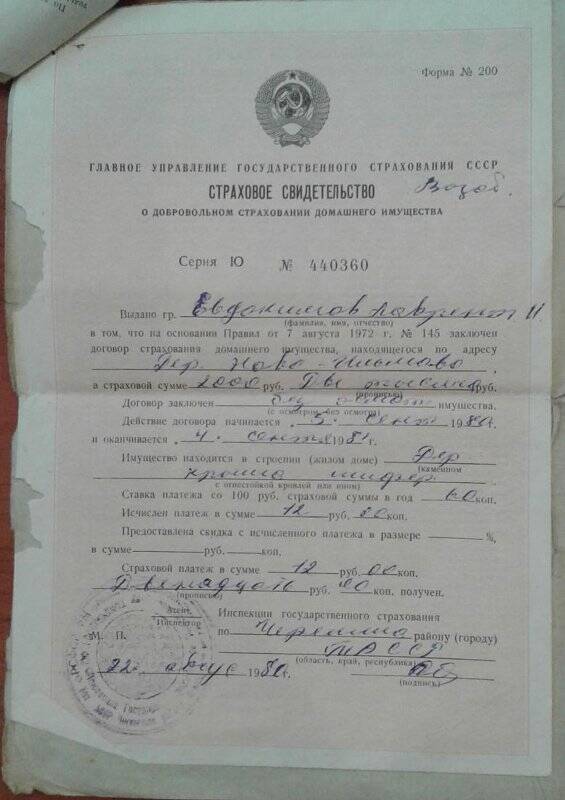 Форма № 200
ГЛАВНОЕ УПРАВЛЕНИЕ ГОСУДАРСТВЕННОГО СТРАХОВАНИЯ СССР
СТРАХОВОЕ СВИДЕТЕЛЬСТВО Возоб.
О ДОБРОВОЛЬНОМ СТРАХОВАНИИ ДОМАШНЕГО ИМУЩЕСТВА
Серия Ю № 440360
Выдано гр. Евдокимов Лаврент И
(фамилия, имя, отчество)
в том, что на основании Правил от 7 августа 1972 г. № 145 заключен
договор страхования домашнего имущества, находящегося по адресу
Дер. Ново-Ильмово
в страховой сумме 2000 руб. Две тысячи руб.
(прописью)
Договор заключен без осмот имущества.
(с осмотром, без осмотра)
Действие договора начинается 5 сент 1980 г.
и оканчивается 4 сентя 1981 г.
Имущество находится в строении (жилом доме) Дер
(каменном
крыша шифер
с огнестойкой кровлей или ином)
Ставка платежа со 100 руб. страховой суммы в год 60 коп.
Исчислен платеж в сумме 12 руб. 00 коп.
Предоставлена скидка с исчисленного платежа в размере %,
в сумме руб. коп.
Страховой платеж в сумме 12 руб. 00 коп.
Двенадцать руб. 00 коп. получен.
(прописью)
Агент
Инспектор
Инспекции государственного страхования
М. П. по району (городу)
ТАССР
(область, край, республика)
22 август 1980 г.
(подпись)